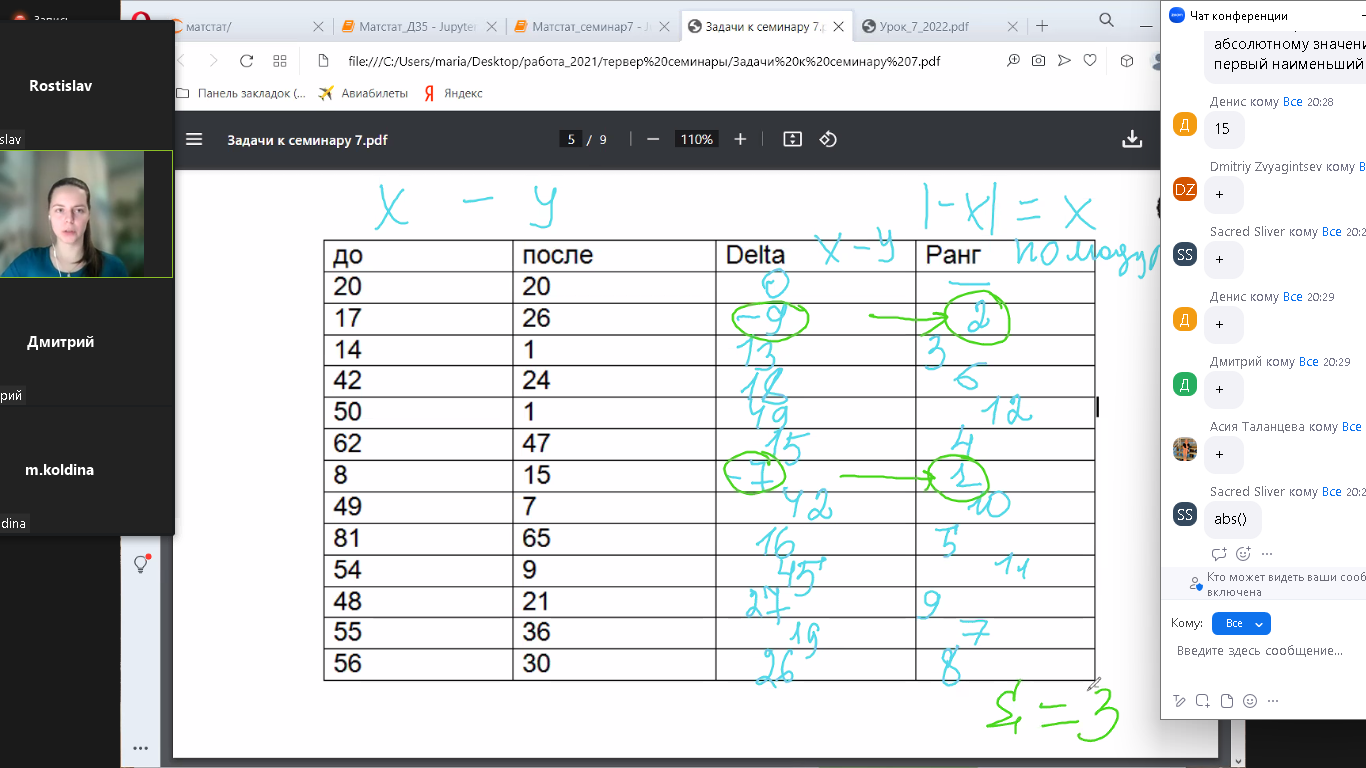 Запись
матстат/
Матстат_Д35 - Jupyter
Матстат_семинар7 - J
Задачи к семинару 7.p
Урок_7_2022.pdf
file:///C:/Users/maria/Desktop/работа_2021/тервер%20семинары/Задачи%20к%20семинару%207.pdf
Панель закладок (...
Авиабилеты
Яндекс
Задачи к семинару 7.pdf
5 / 9
110%
Rostislav
slav
Дмитрий
рий
m.koldina
dina
x - y |-x| = x
до после Delta x-y Ранг по модул
20 20 0 —
17 26 -9 2
14 1 13 3
42 24 18 6
50 1 49 12
62 47 15 4
8 15 -7 1
49 7 42 10
81 65 16 5
54 9 45 11
48 21 27 9
55 36 19 7
56 30 26 8
= 3
Чат конференции
абсолютному значени
первый наименьший
Денис кому Все 20:28
Д
15
Dmitriy Zvyagintsev кому В
DZ
+
Sacred Sliver кому Все 20:2
SS
+
Денис кому Все 20:29
Д
+
Дмитрий кому Все 20:29
Д
+
Асия Таланцева кому Все
+
Sacred Sliver кому Все 20:2
SS
abs()
Кто может видеть ваши сооб
включена
Кому: Все
Введите здесь сообщение...